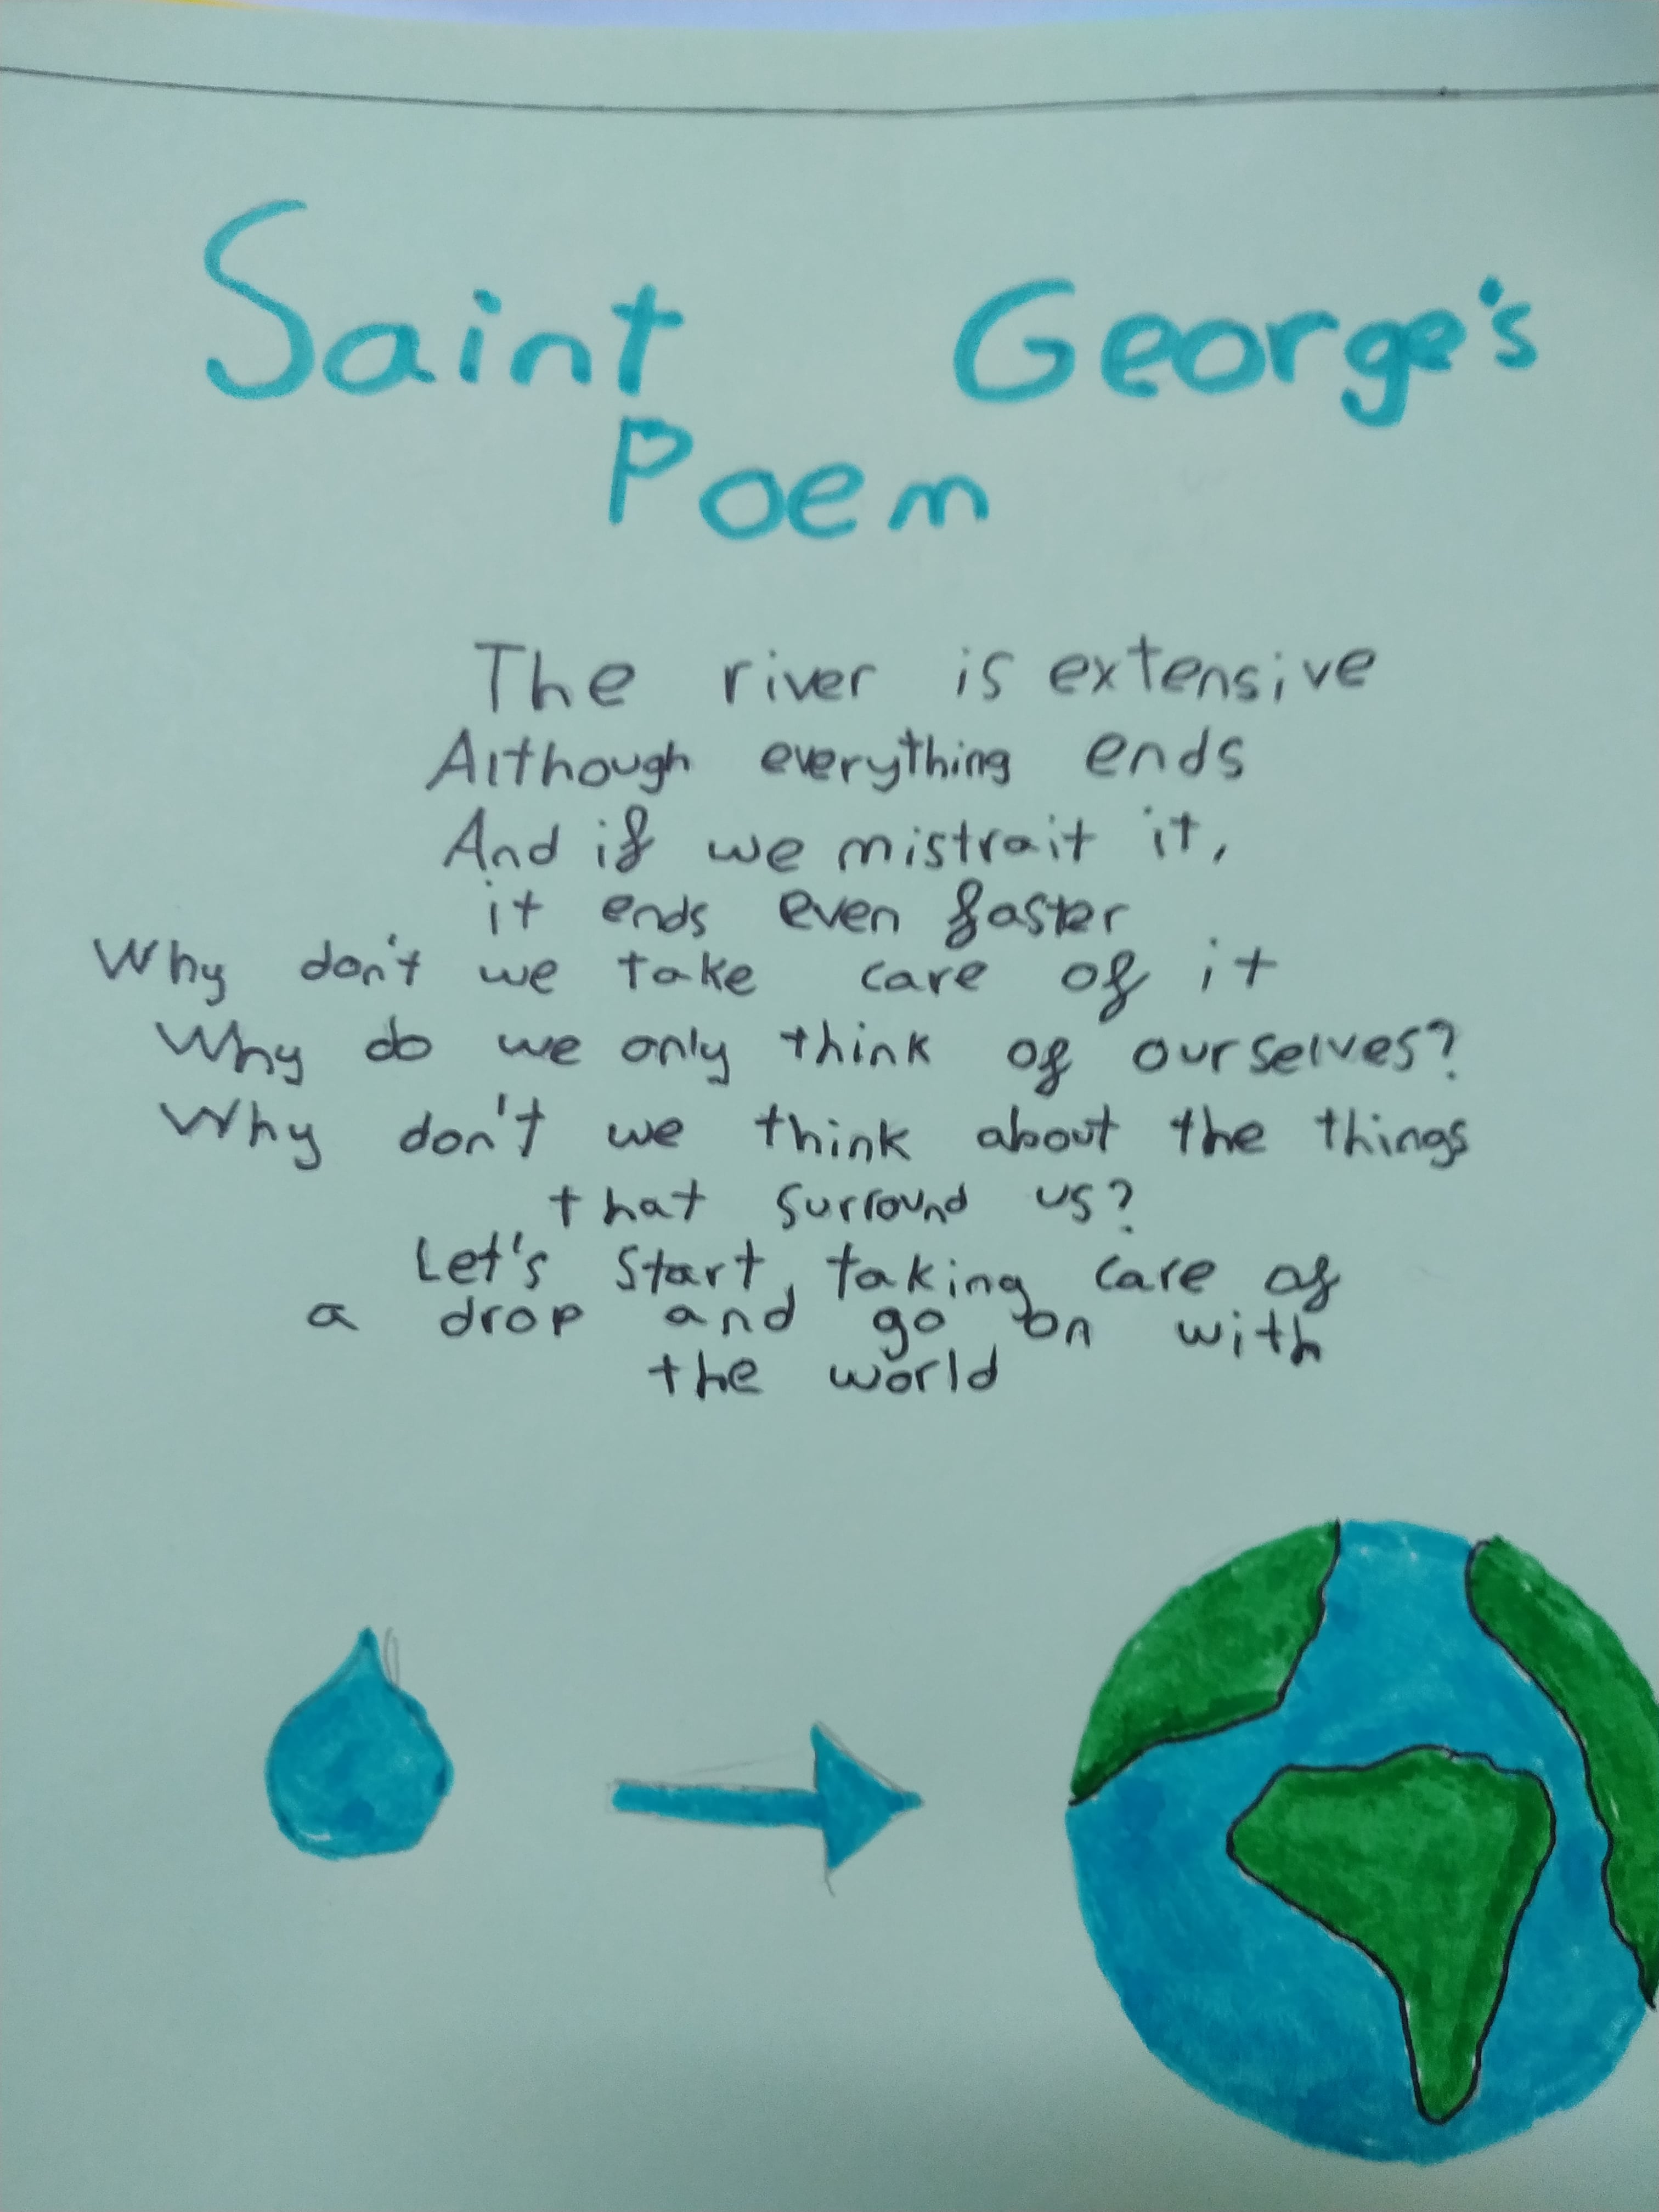 Saint George's
Poem
The river is extensive
Although everything ends
And if we mistrait it,
it ends even faster
Why don't we take care of it
Why do we only think of ourselves?
Why don't we think about the things
that surround us?
Let's start, taking care of
a drop and go on with
the world